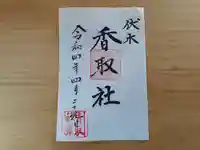 伏木
香取社
令和四年四月二十